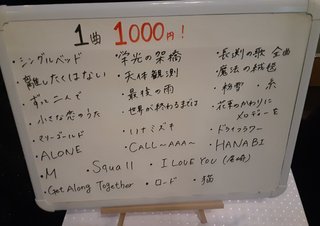 1曲 1000円!
・シングルベッド ・栄光の架橋 ・長渕の歌 全曲
・離したくはない ・天体観測 ・魔法の絨毯
・ずっと二人で ・最後の雨 ・粉雪 ・糸
・小さな恋のうた ・世界が終わるまでは ・花束のかわりに
メロディーを
・マリーゴールド ・ハナミズキ ・ドライフラワー
・ALONE ・CALL〜AAA〜 ・HANABI
・M ・Squall ・I LOVE YOU (尾崎)
・Get Along Together ・ロード ・猫